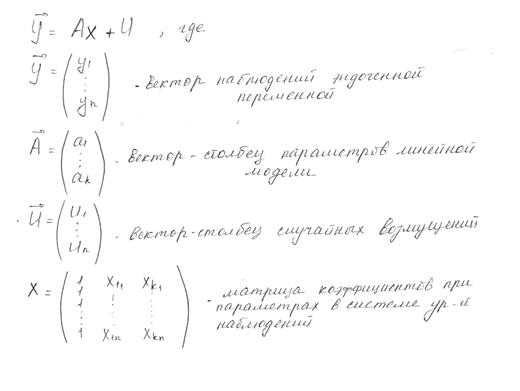 y⃗ = Ax + U , где
y⃗ = (y₁ ⋮ yₙ) - вектор наблюдений эндогенной
переменной
A⃗ = (a₁ ⋮ aₖ) - вектор-столбец параметров линейной
модели
U⃗ = (u₁ ⋮ uₙ) - вектор-столбец случайных возмущений
X = (1 x₁₁ xₖ₁
1 ⋮ ⋮
1 ⋮ ⋮
⋮
1 x₁ₙ xₖₙ) - матрица коэффициентов при
параметрах в системе ур-й
наблюдений